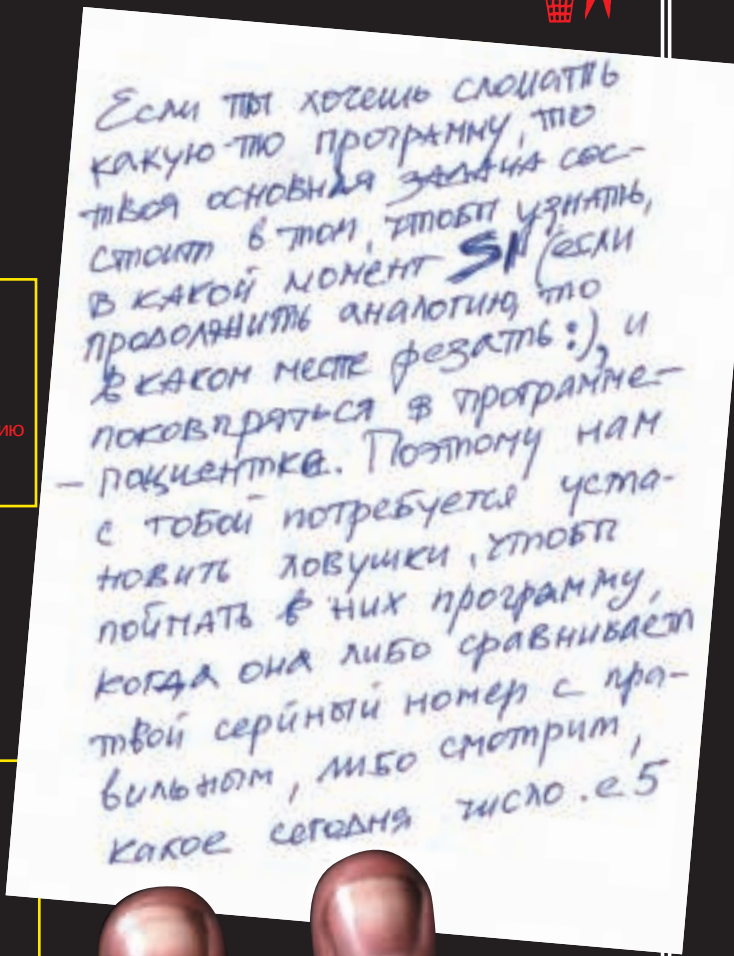 Если ты хочешь сломать
какую-то программу, то
твоя основная задача сос-
стоит в том, чтобы узнать,
в какой момент SI (если
продолжить аналогию, то
в каком месте резать :), и
поковпряться в программе-
-пациентке. Поэтому нам
с тобой потребуется уста-
новить ловушки, чтобы
поймать в них программу,
когда она либо сравнивает
твой серийный номер с пра-
вильным, либо смотрит,
какое сегодня число .е5
ию